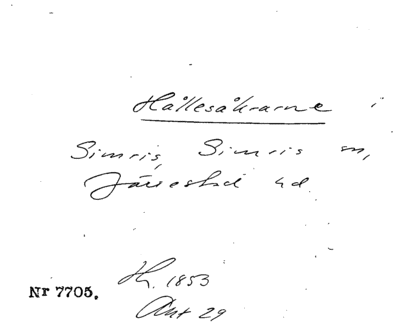 Hållesåkrarne i
Simris, Simris sn,
Järrestad hd.
Nr 7705.
H. 1853
Akt 29